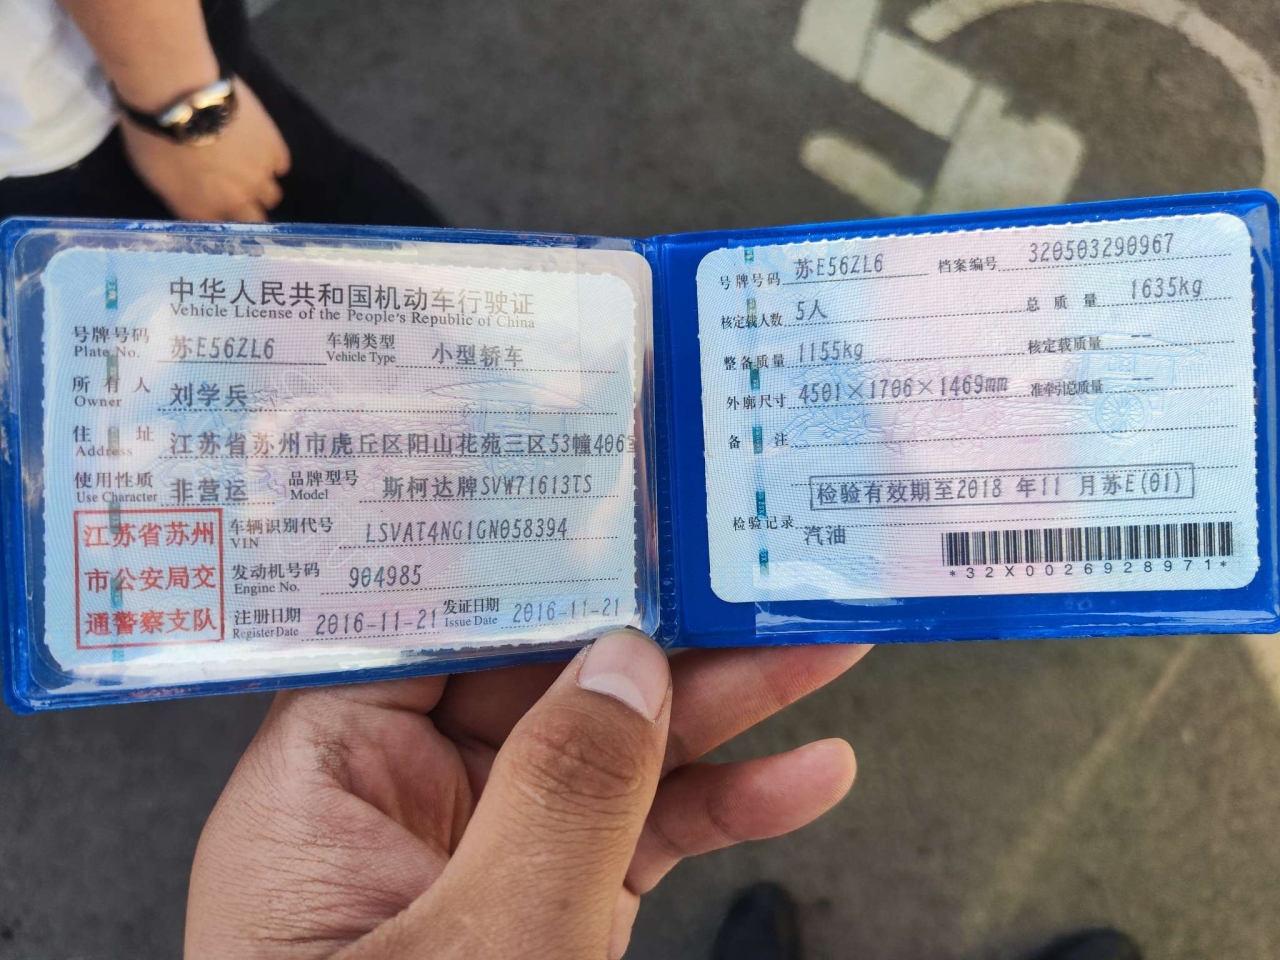 中华人民共和国机动车行驶证
Vehicle License of the People's Republic of China
号牌号码 苏E56ZL6 车辆类型 小型轿车
Plate No. Vehicle Type
所有人 刘学兵
Owner
住址 江苏省苏州市虎丘区阳山花苑三区53幢406室
Address
使用性质 非营运 品牌型号 斯柯达牌SVW71613TS
Use Character Model
江苏省苏州
市公安局交
通警察支队
车辆识别代号 LSVAT4NG1GN058394
VIN
发动机号码 904985
Engine No.
注册日期 2016-11-21 发证日期 2016-11-21
Register Date Issue Date
号牌号码 苏E56ZL6 档案编号 320503290967
核定载人数 5人 总质量 1635kg
整备质量 1155kg 核定载质量 --
外廓尺寸 4501×1706×1469mm 准牵引总质量 --
备注
检验有效期至2018 年11 月苏E(01)
检验记录
汽油
*32X0026928971*